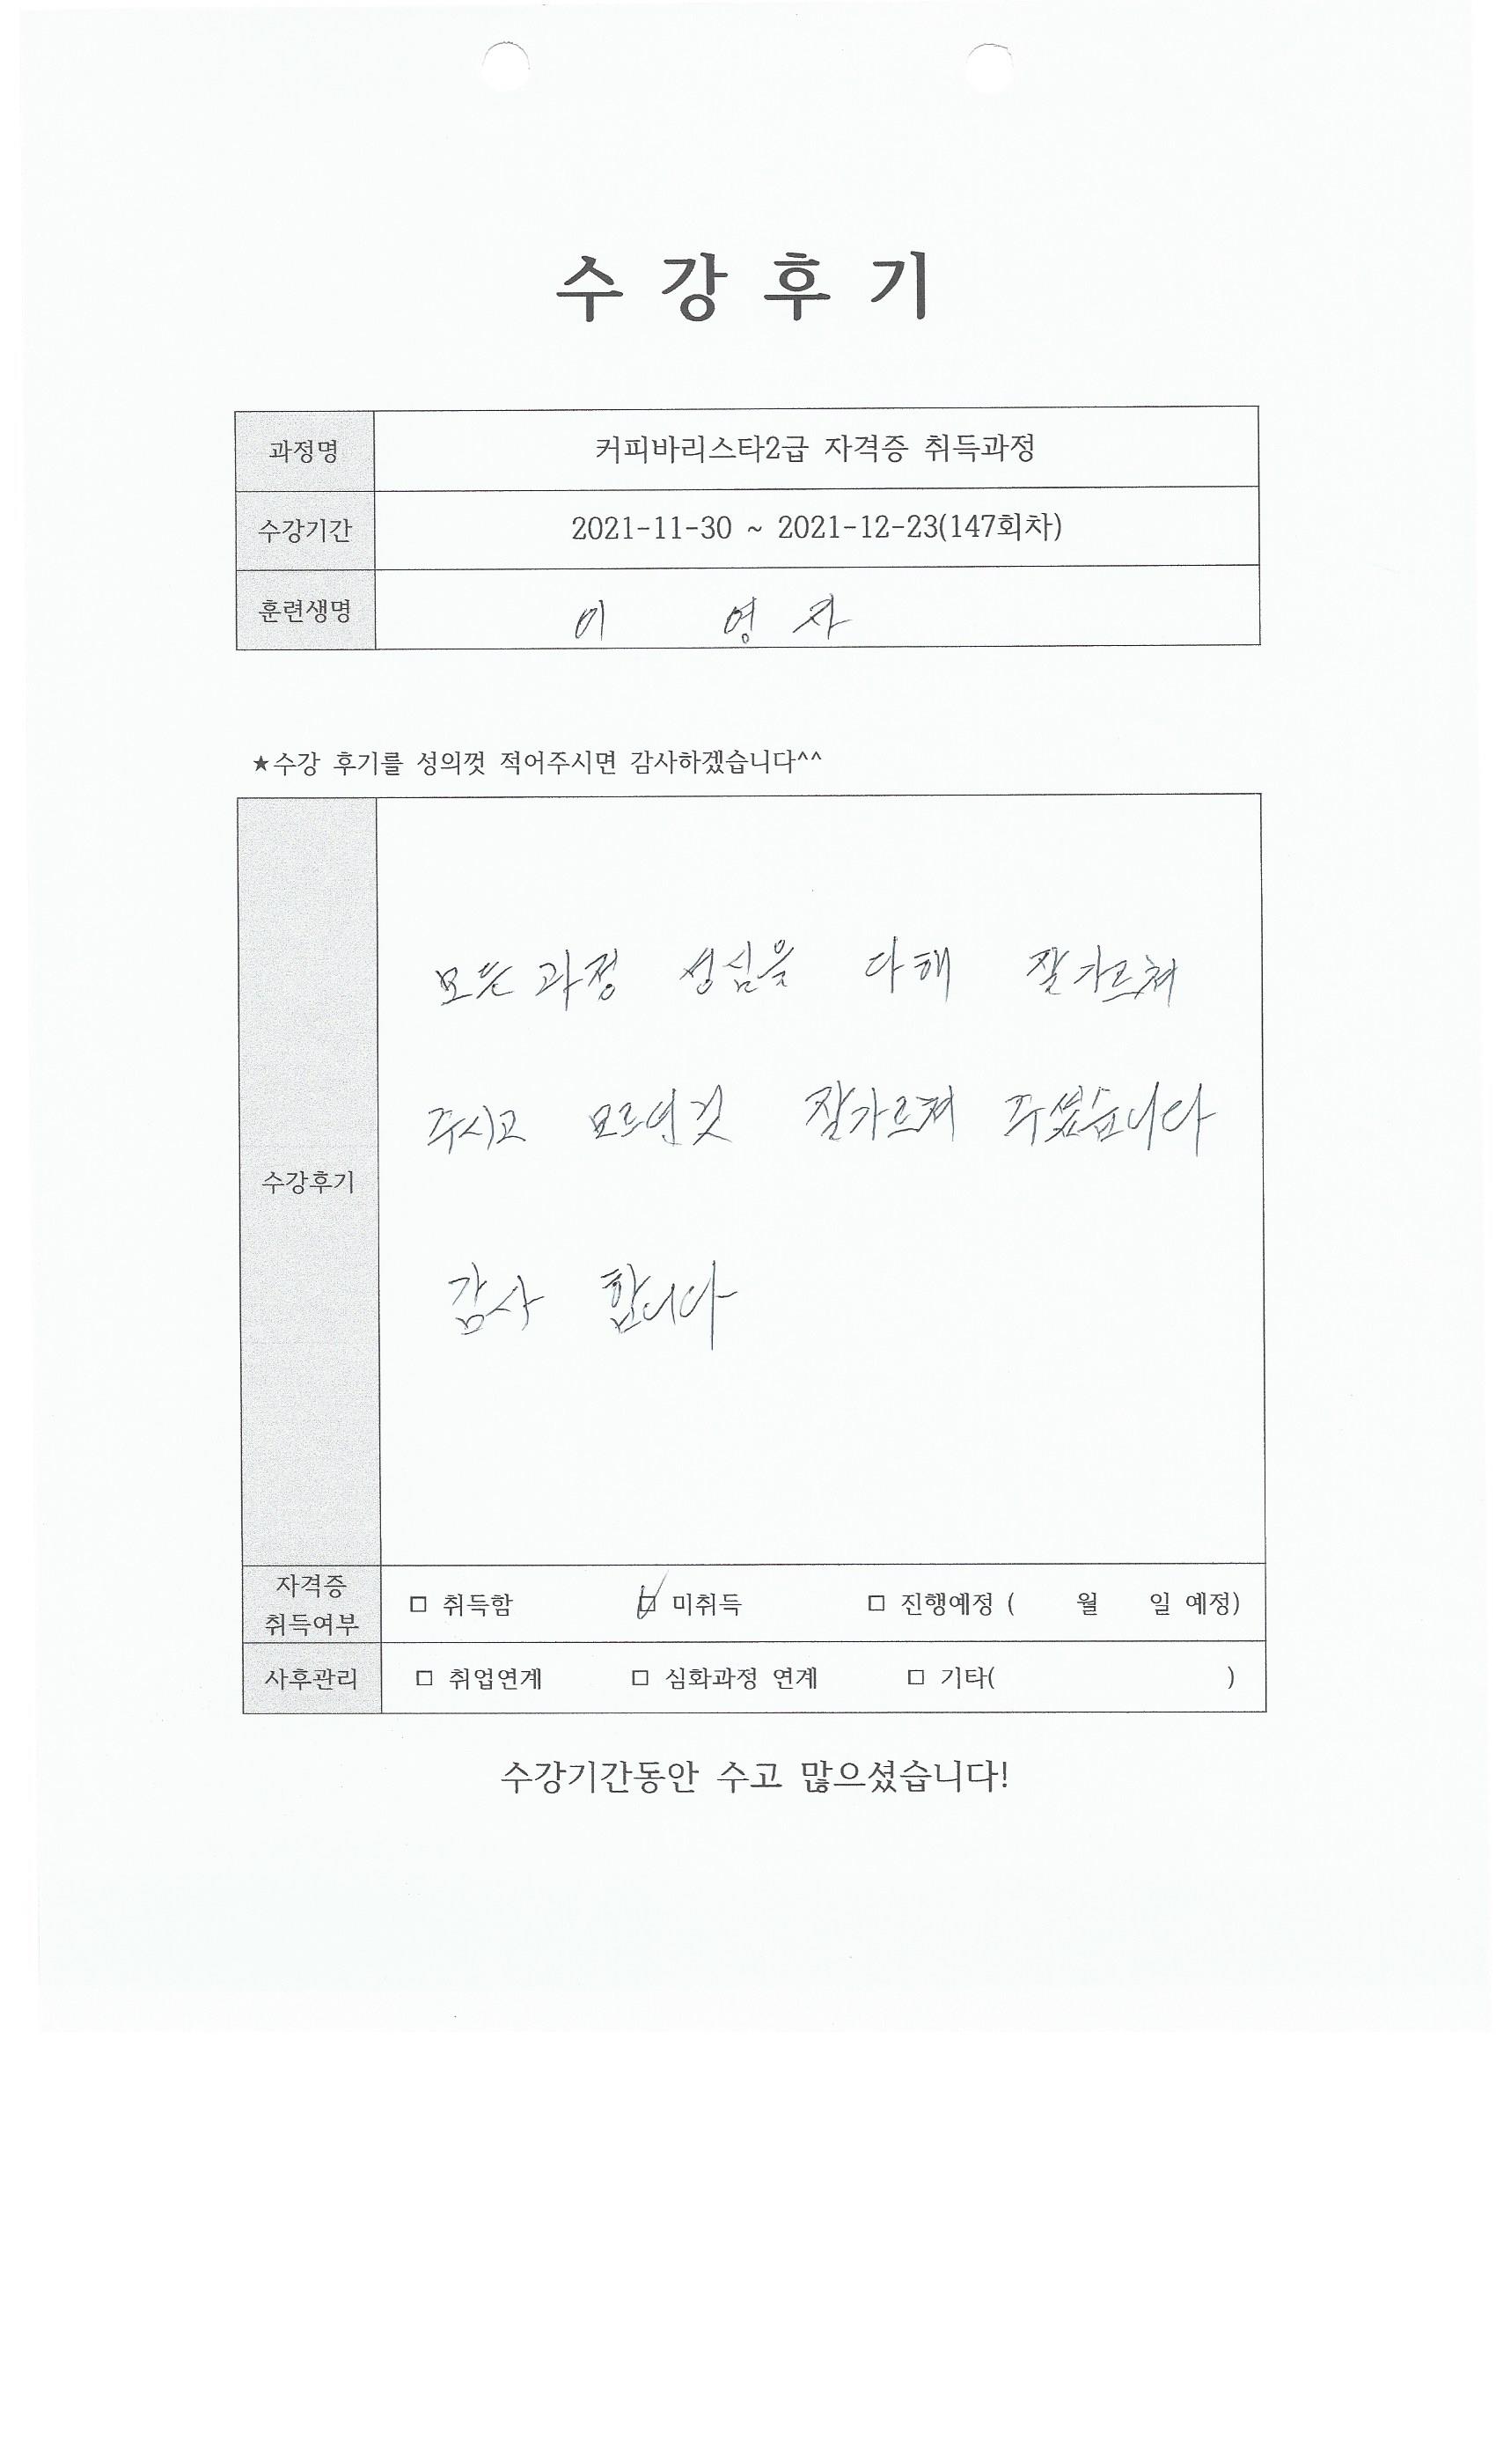 수 강 후 기
과정명 커피바리스타2급 자격증 취득과정
수강기간 2021-11-30 ~ 2021-12-23(147회차)
훈련생명 이 영 자
★수강 후기를 성의껏 적어주시면 감사하겠습니다^^
수강후기
모든 과정 성심을 다해 잘가르쳐
주시고 잘가르쳐 주셨습니다
감사 합니다
자격증
취득여부
□ 취득함 ☑ 미취득 □ 진행예정 ( 월 일 예정)
사후관리 □ 취업연계 □ 심화과정 연계 □ 기타( )
수강기간동안 수고 많으셨습니다!